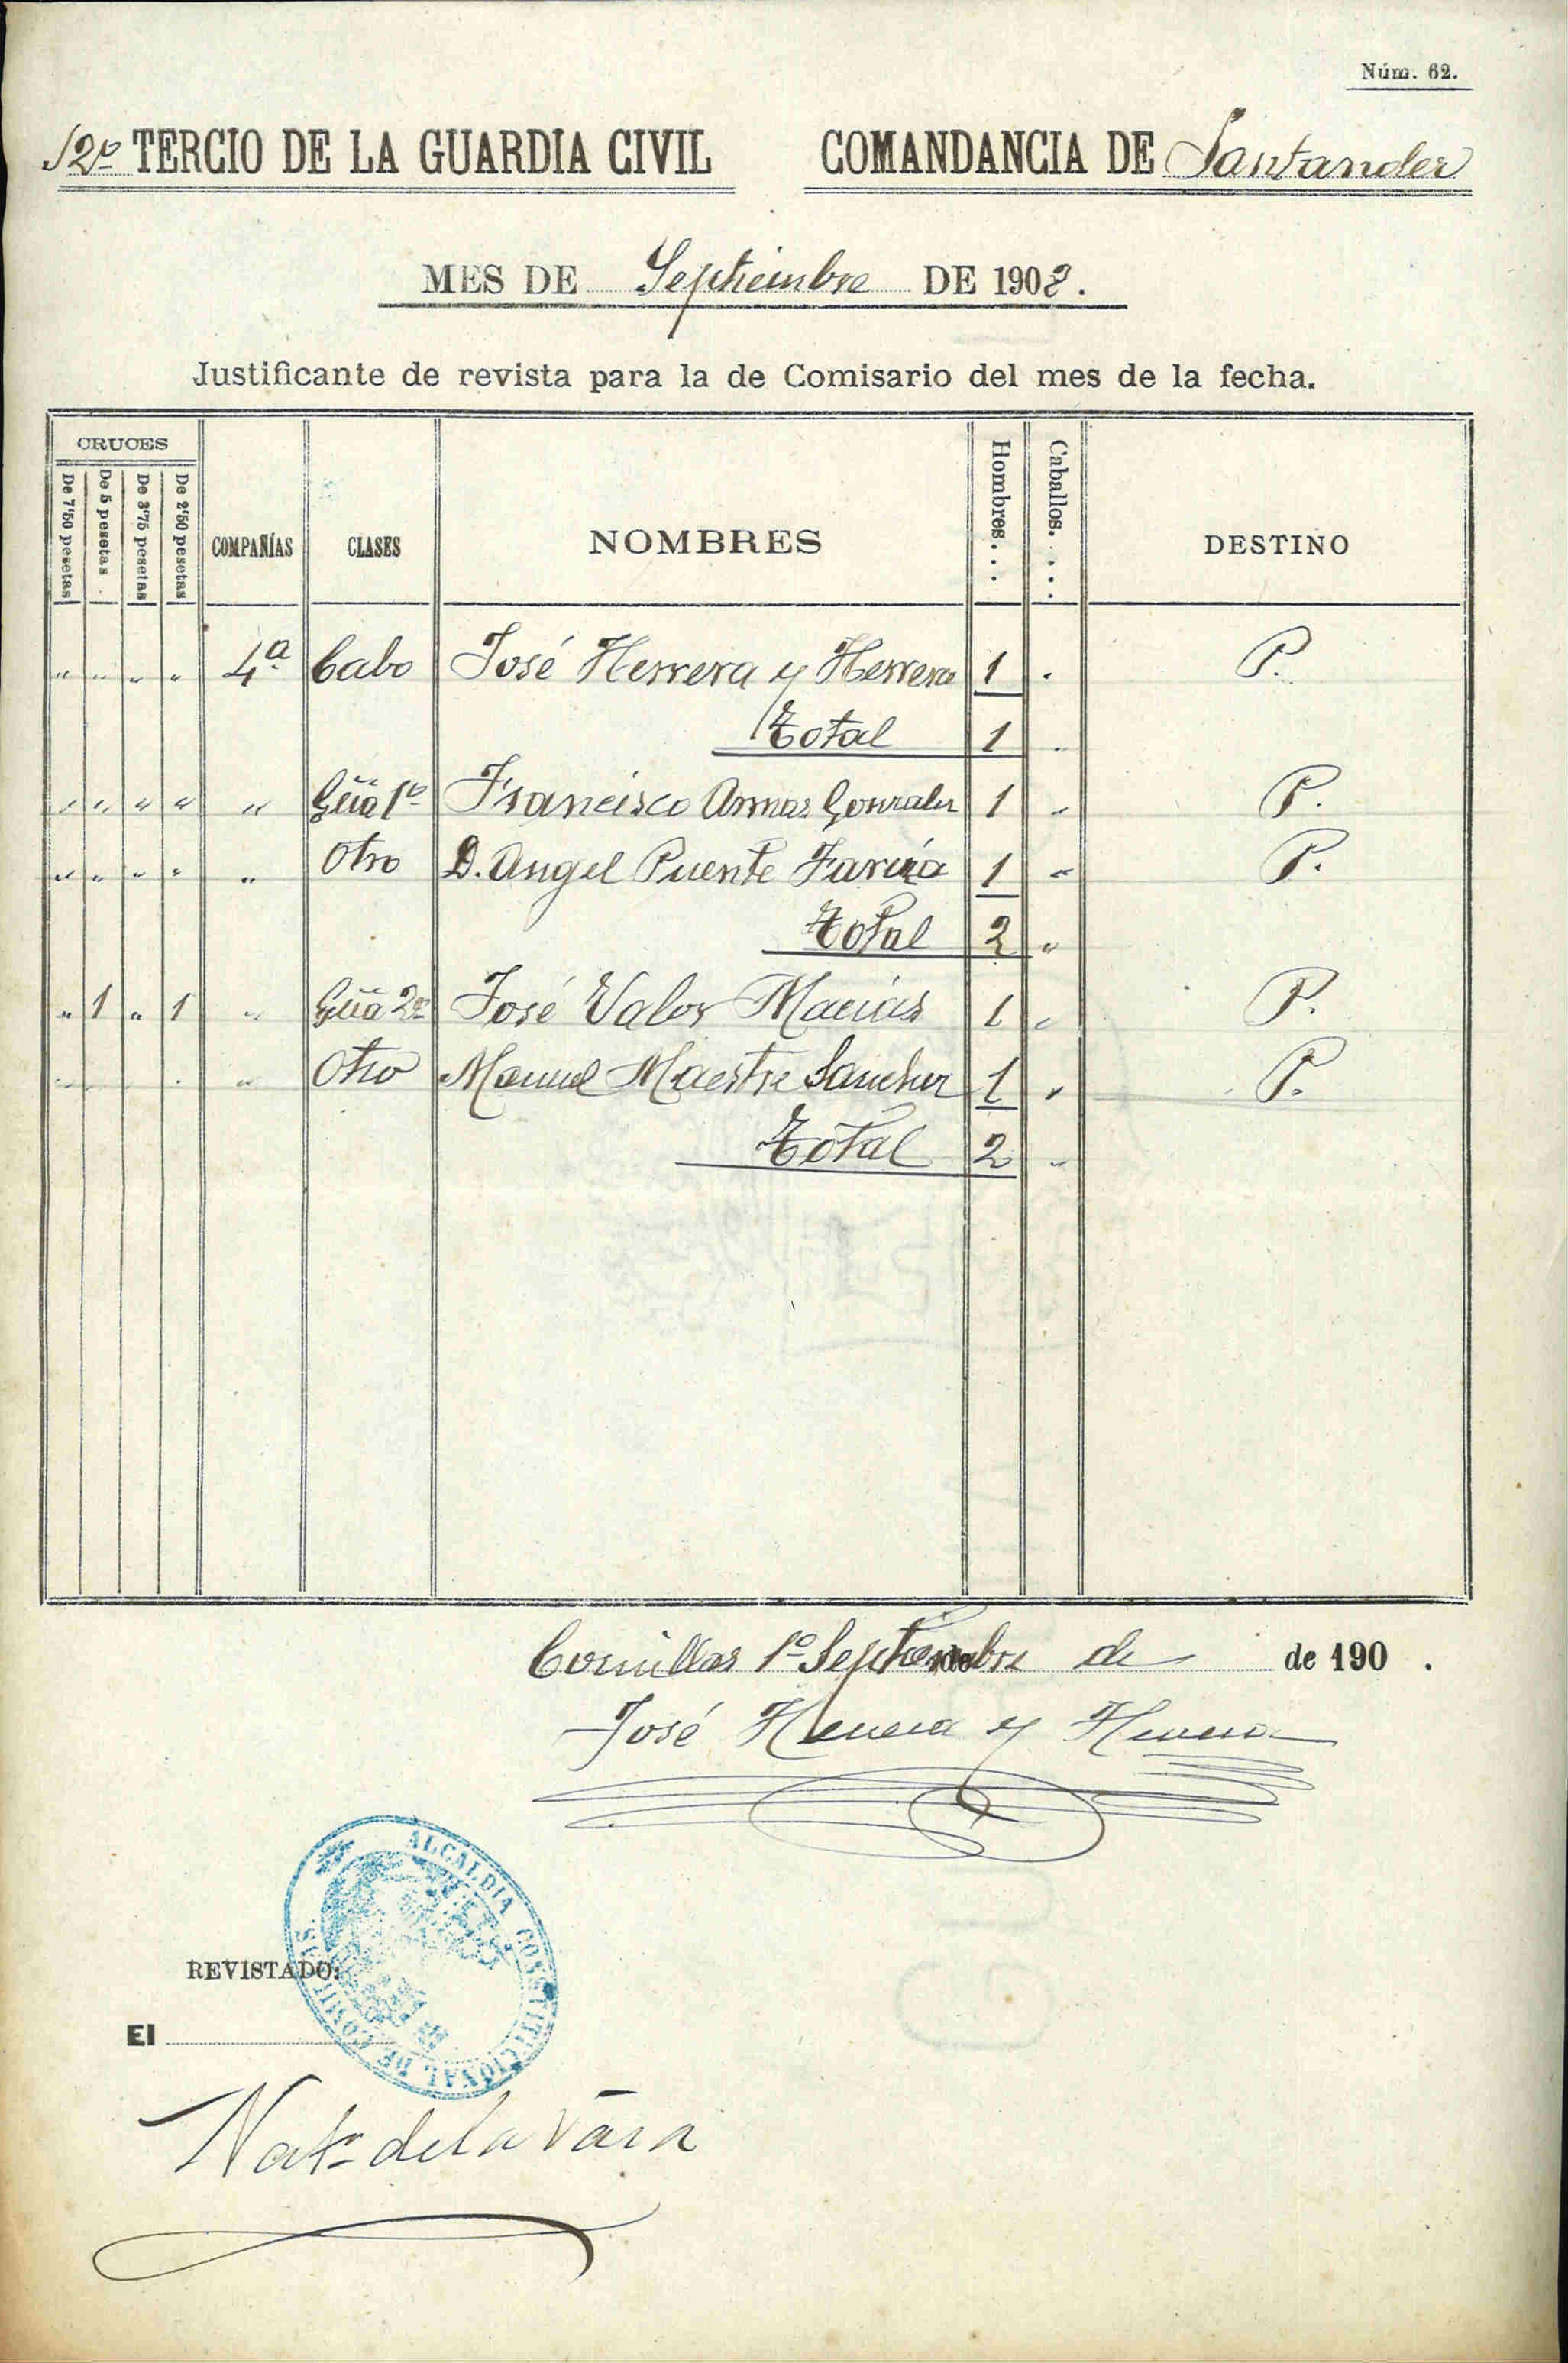 Núm. 62.
12º TERCIO DE LA GUARDIA CIVIL COMANDANCIA DE Santander
MES DE Septiembre DE 1902.
Justificante de revista para la de Comisario del mes de la fecha.
CRUCES
De 7'50 pesetas De 5 pesetas. De 3'75 pesetas De 2'50 pesetas COMPAÑÍAS CLASES NOMBRES Hombres... Caballos.... DESTINO
" " " " 4ª Cabo José Herrera y Herrera 1 " P.
Total 1 "
" " " " " Güa 1º Francisco Armas Gonzalez 1 " P.
" " " " " Otro D. Angel Puente Fariña 1 " P.
Total 2 "
" 1 " 1 " Güa 2º José Valor Macias 1 " P.
" " " " " Otro Manuel Maestre Sanchez 1 " P.
Total 2 "
Comillas 1º Septiembre de de 190 .
José Herrera y Herrera
ALCALDIA CONSTITUCIONAL DE COMILLAS
REVISTADO:
El
de la Vara